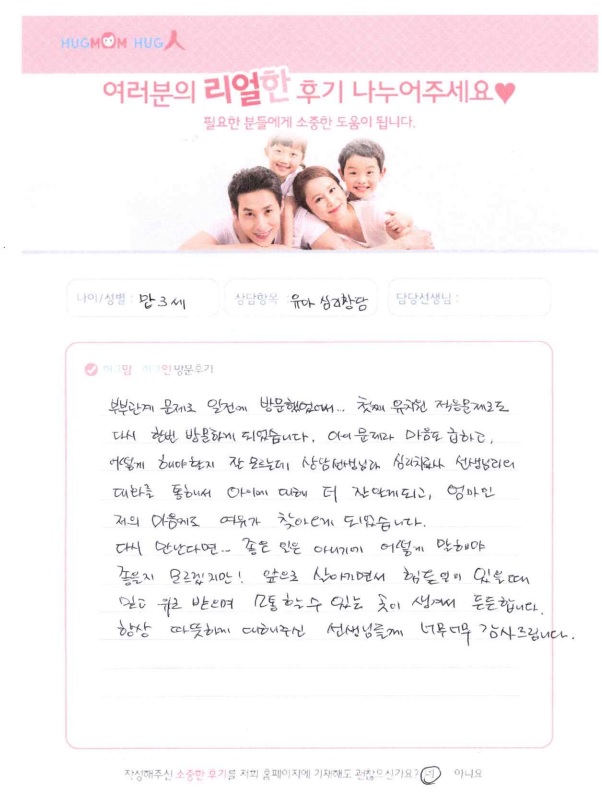 HUGMOM HUG人
여러분의 리얼한 후기 나누어주세요♥
필요한 분들에게 소중한 도움이 됩니다.
나이/성별 : 만 3세
상담항목 : 유아 심리상담
담당선생님 :
허그맘 허그인 방문후기
부부관계 문제로 일전에 방문했었어서... 첫째 유치원 적응문제로도
다시 한번 방문하게 되었습니다. 아이 문제라 마음도 급하고,
어떻게 해야할지 잘 모르는데 상담선생님과 심리치료사 선생님과의
대화를 통해서 아이에 대해 더 잘 알게되고, 엄마인
저의 마음에도 여유가 찾아오게 되었습니다.
다시 만난다면... 좋은 일은 아니기에 어떻게 말해야
좋을지 모르겠지만! 앞으로 살아가면서 힘든일이 있을때
믿고 위로 받으며 소통할수 있는 곳이 생겨서 든든합니다.
항상 따뜻하게 대해주신 선생님들께 너무너무 감사드립니다.
작성해주신 소중한 후기를 저희 홈페이지에 기재해도 괜찮으신가요? 네 아니요